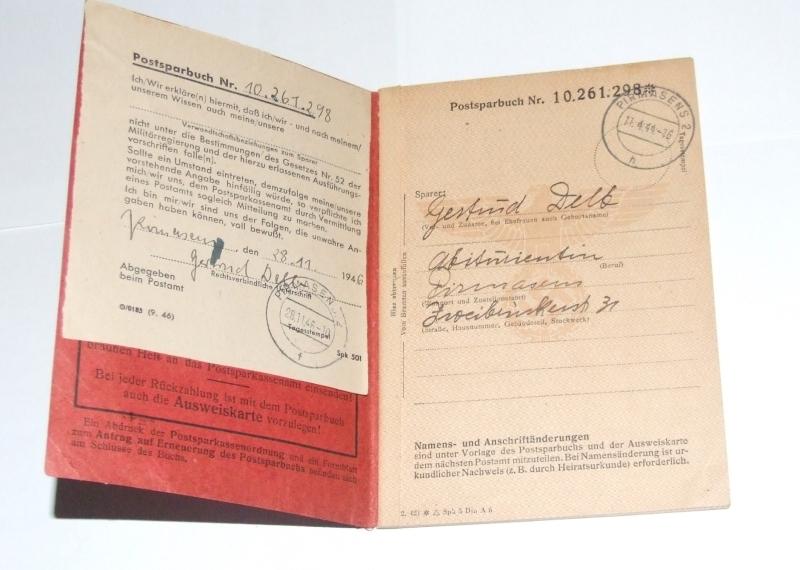 Postsparbuch Nr. 10.261.298
Ich/Wir erkläre(n) hiermit, daß ich/wir - und nach meinem/
unserem Wissen auch meine/unsere
Verwandtschaftsbeziehungen zum Sparer
nicht unter die Bestimmungen des Gesetzes Nr. 52 der
Militärregierung und der hierzu erlassenen Ausführungs-
vorschriften falle(n).
Sollte ein Umstand eintreten, demzufolge meine/unsere
vorstehende Angabe hinfällig würde, so verpflichte ich
mich/wir uns, dem Postsparkassenamt durch Vermittlung
eines Postamts sogleich Mitteilung zu machen.
Ich bin mir/wir sind uns der Folgen, die unwahre An-
gaben haben können, voll bewußt.
Pirmasens, den 28.11. 1946
Gertrud Delb
Rechtsverbindliche Unterschrift
Abgegeben
beim Postamt
PIRMASENS
28.11.46-10
Tagesstempel
f
(9. 46)
Spk 501
braunen Heft an das Postsparkassenamt einsenden!
Bei jeder Rückzahlung ist mit dem Postsparbuch
auch die Ausweiskarte vorzulegen!
Ein Abdruck der Postsparkassenordnung und ein Formblatt
zum Antrag auf Erneuerung des Postsparbuchs befinden sich
am Schlusse des Buchs.
Postsparbuch Nr. 10.261.298*
PIRMASENS 2
11.4.44-16
h
(Tagesstempel)
Hier abtrennen
Vom Beamten auszufüllen
Sparer:
Gertrud Delb
(Vor- und Zuname, bei Ehefrauen auch Geburtsname)
Abiturientin
(Beruf)
Pirmasens
(Wohnort und Zustellpostamt)
Zweibrückerstr 31
(Straße, Hausnummer, Gebäudeteil, Stockwerk)
Namens- und Anschriftänderungen
sind unter Vorlage des Postsparbuchs und der Ausweiskarte
dem nächsten Postamt mitzuteilen. Bei Namensänderung ist ur-
kundlicher Nachweis (z. B. durch Heiratsurkunde) erforderlich.
Spk 5 Din A 6